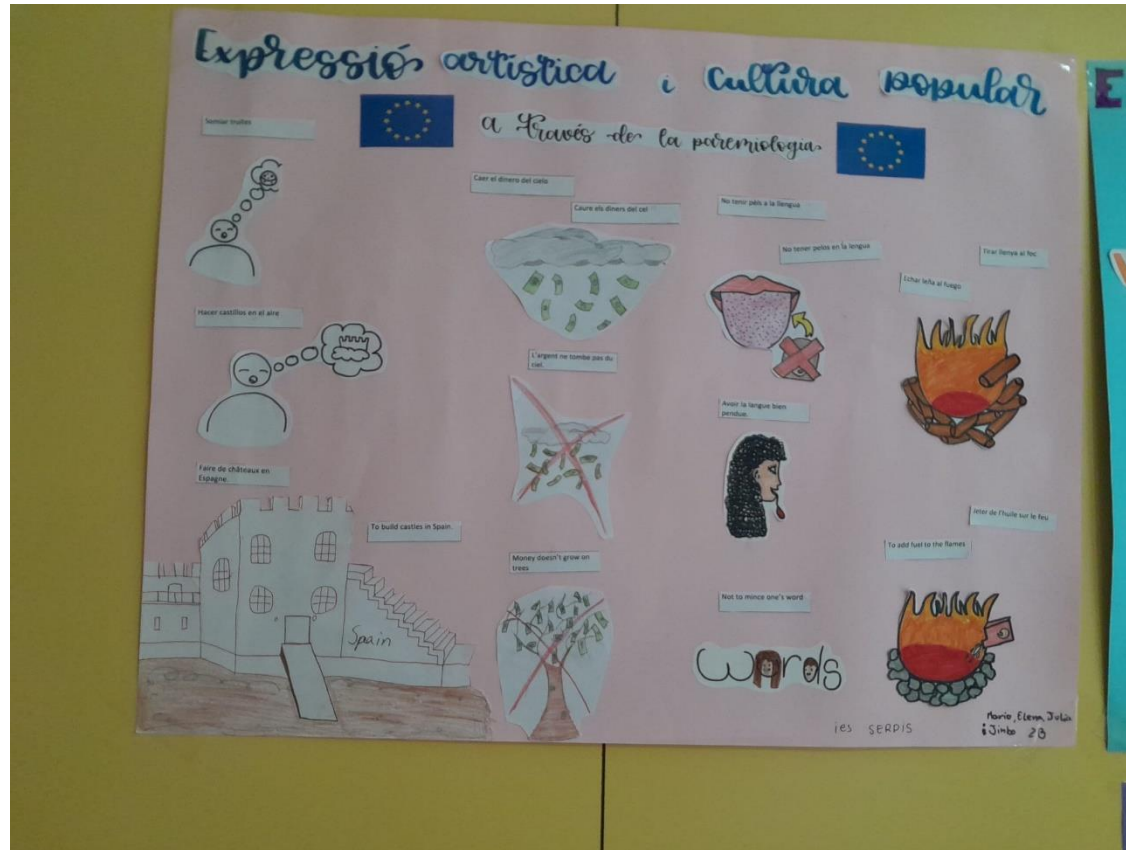 Expressió artística i cultura popular
a través de la paremiologia
Somiar truites
Hacer castillos en el aire
Faire de châteaux en
Espagne.
To build castles in Spain.
Spain
Caer el dinero del cielo
Caure els diners del cel
L'argent ne tombe pas du
ciel.
Money doesn't grow on
trees
No tenir pèls a la llengua
No tener pelos en la lengua
Avoir la langue bien
pendue.
Not to mince one's word
words
Tirar llenya al foc
Echar leña al fuego
Jeter de l'huile sur le feu
To add fuel to the flames
ies SERPIS
Mario, Elena, Julia
i Jinbo 2B
E